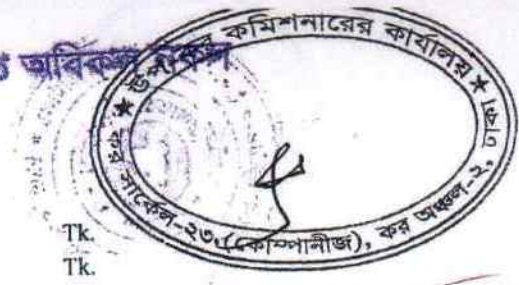 অবিকল
★ উপ কর কমিশনারের কার্যালয় ★
কর সার্কেল-২৩,(কোম্পানীজ), কর অঞ্চল-২, ঢাকা
Tk.
Tk.